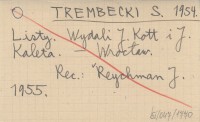 TREMBECKI S. 1954.
Listy. Wydali J. Kott i J.
Kaleta. — Wrocław.
Rec.: Reychman J.
1955.